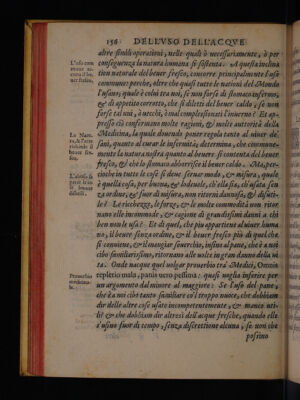 156 DELL'VSO DELL'ACQVE
altre simili operationi, nelle quali è necessariamente, è per
conseguenza la natura humana si sostenta. A questa inclina
tion naturale del beuer fresco, concorre principalmente l'uso
commune; perche, oltre che quasi tutte le nationi del Mondo
l'usano; quale è colui tra noi, se non forse di stomaco infermo,
& di appetito corrotto, che si diletti del beuer caldo, se non
forse tal hora, i uecchi, ò mal complessionati l'inuerno? Et ap
presso ciò confermano molte ragioni, & molte autorità della
Medicina, la quale douendo poner regola tanto al uiuer de'
sani, quanto al curar de gl'infermi; determina, che commune
mente la natura nostra quanto al beuere si contenta del beuer
fresco, & che lo stomaco abborrisce il beuer caldo. Ma, per-
cioche in tutte le cose si deue seruar modo, & misura, quale
è quella cosa, per buona, & lodeuole, che ella sia, di usata sen
za ordine, & fuor di misura, non ritorni dannosa, & disuti-
le? Le ricchezze, le forze, & le molte commodità non ritor
nano elle incommode, & cagione di grandissimi danni a chi
ben non le usa? Et di quel, che piu appartiene al uiuer huma
no, il beuere senza ordine, & il beuer fresco piu di quel che
si conuiene, & il mangiar souerchio, insino al pane, che è a noi
tanto familiarissimo, ritornano alle uolte in gran danno della ui
ta. Onde nacque quel uolgar prouerbio tra' Medici, Omnis
repletio mala, panis vero pessima: quasi uoglia inferire per
un argomento dal minore al maggiore: Se l'uso del pane,
che è a noi tanto familiare ci è troppo nuoce, che dobbiam
dir delle altre cose usate incompetentemente, & manco uti-
li? & che dobbiam dir altresì dell'acque fresche, quando elle
s'usino fuor di tempo, senza discrettione alcuna, se non che
possino
L'uso com
mune ac-
cetta il be-
uer fresco.
La Natu
ra, & l'arte
richiede il
beuer fre-
sco.
L'abuso fa
parer tristo
le buone
disutili.
Prouerbio
medicina-
le.